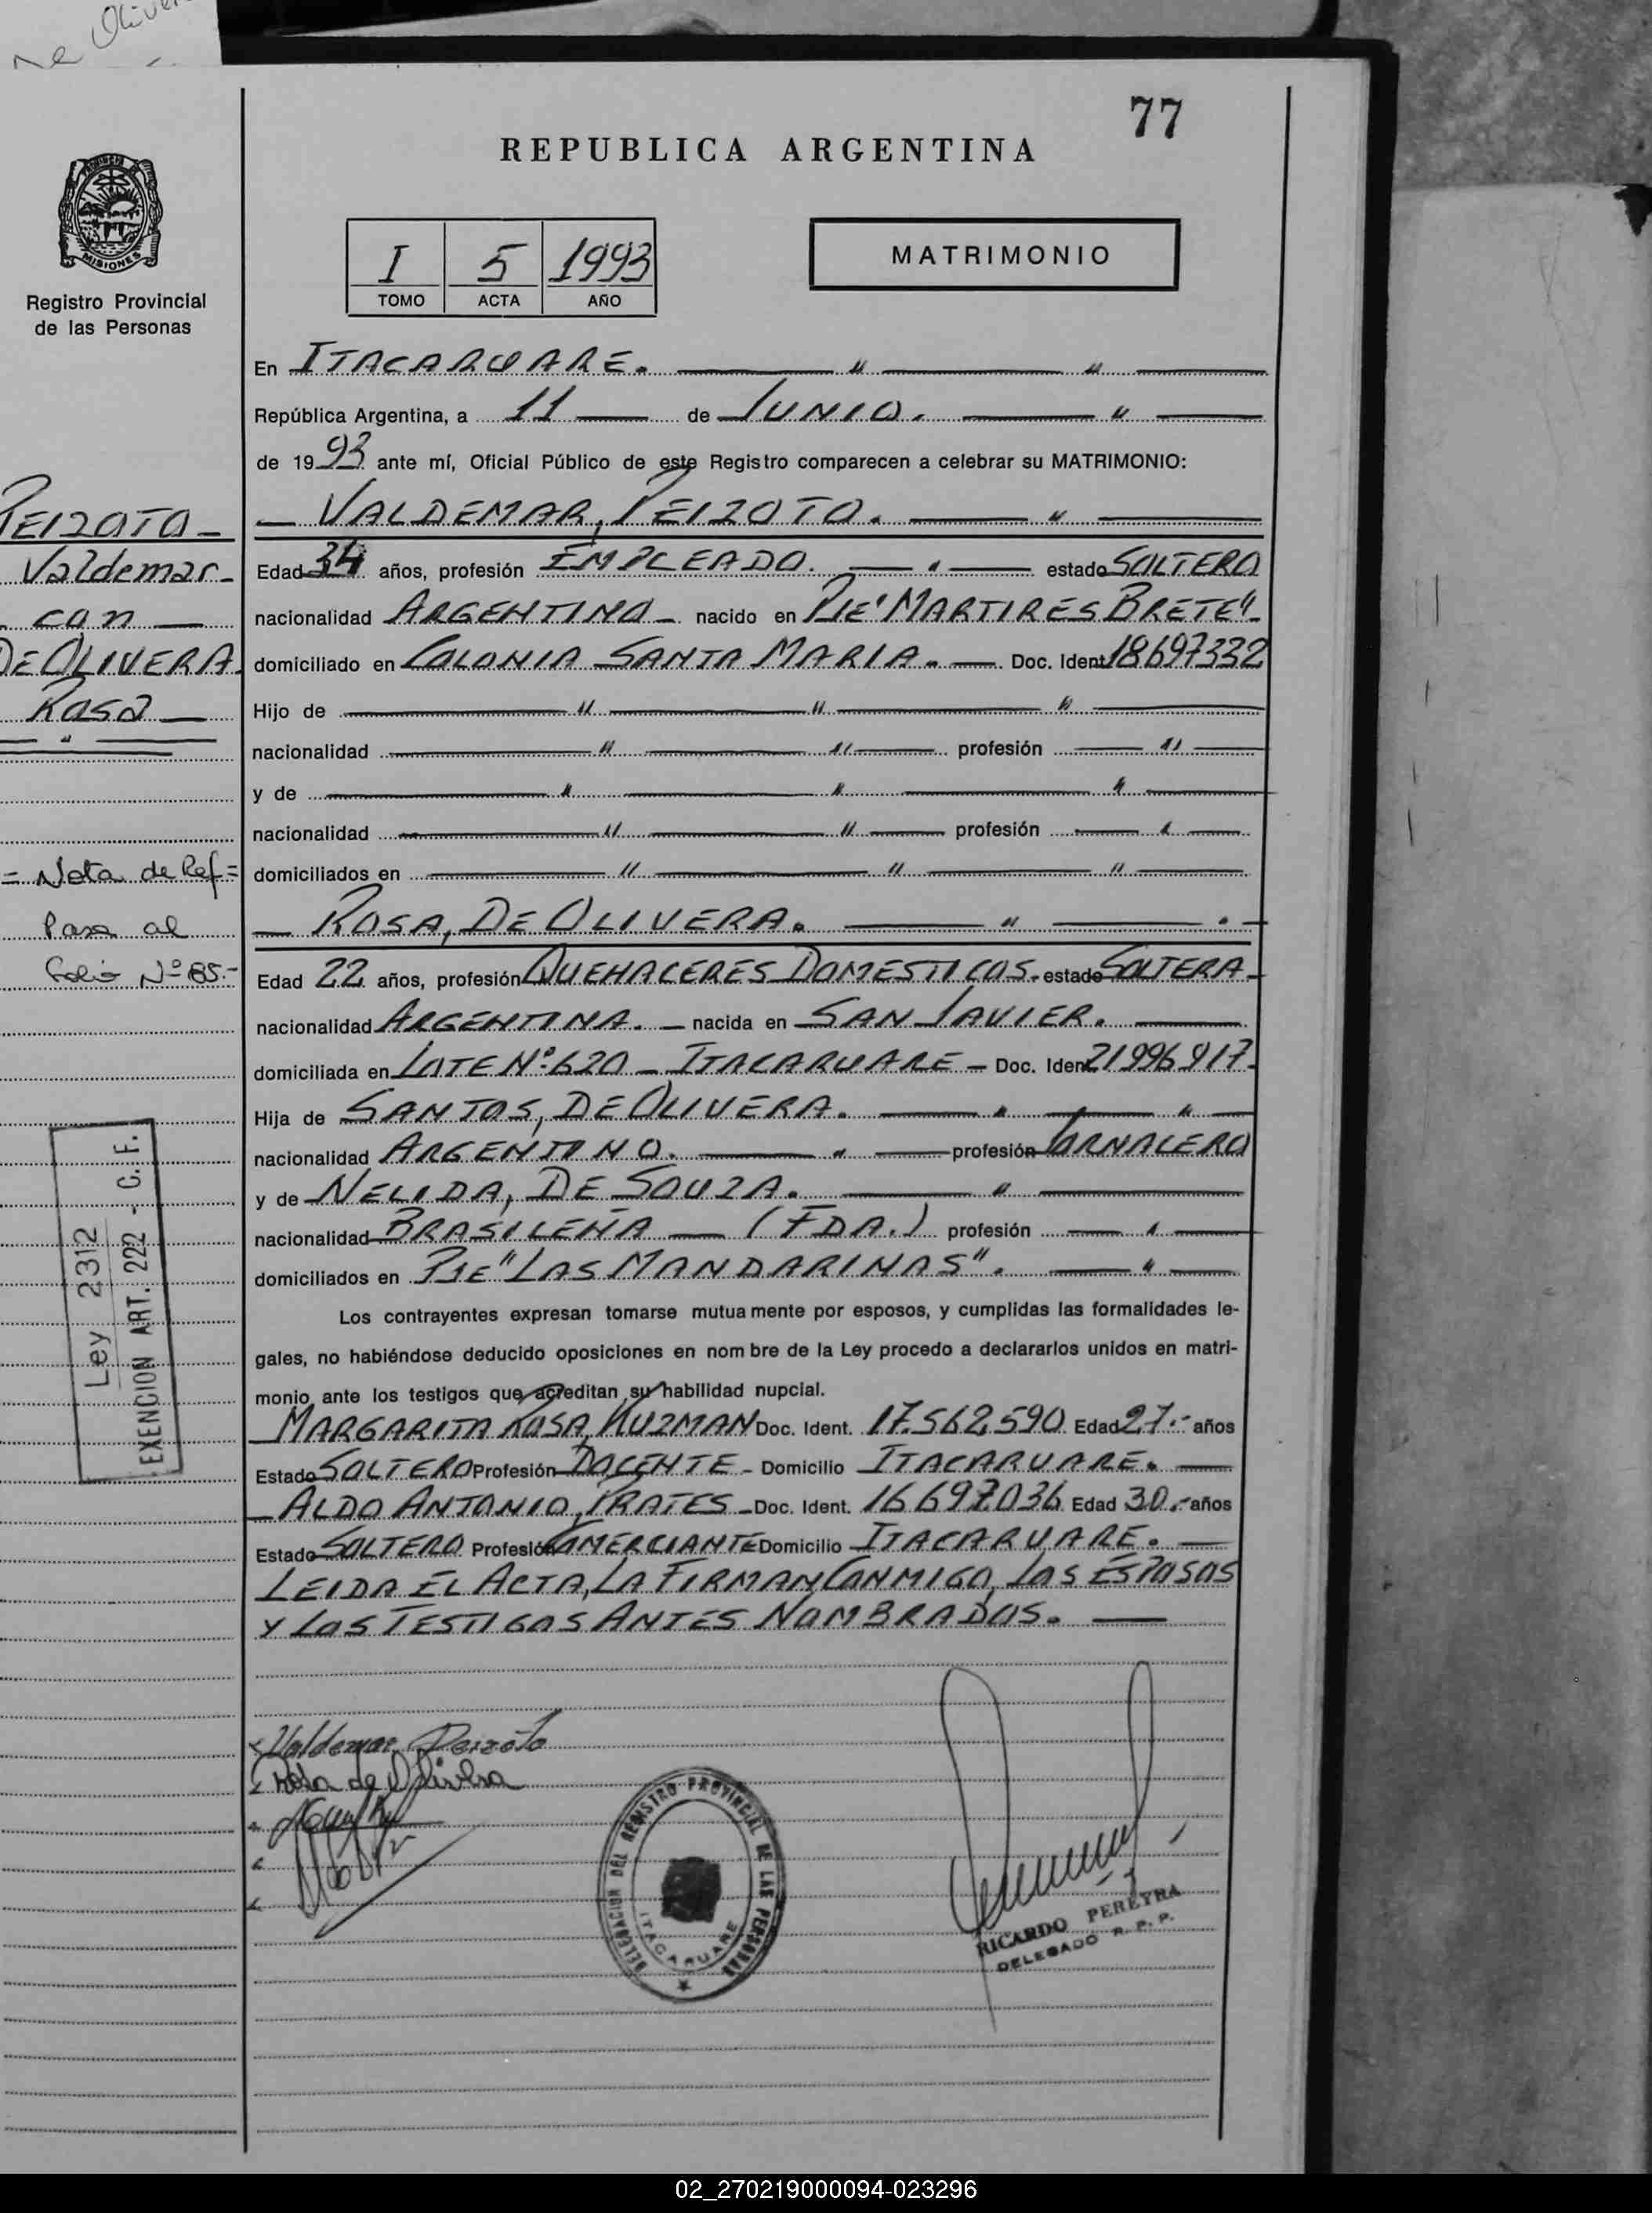 de Oliver
77
REPUBLICA ARGENTINA
MISIONES
Registro Provincial
de las Personas
I 5 1993
TOMO ACTA AÑO
MATRIMONIO
En ITACARUARE. " "
República Argentina, a 11 de JUNIO. "
de 1993 ante mí, Oficial Público de este Registro comparecen a celebrar su MATRIMONIO:
VALDEMAR, PEIZOTO. "
Edad 34 años, profesión EMPLEADO. " estado SOLTERO
nacionalidad ARGENTINO nacido en PJE" MARTIRES BRETE"
domiciliado en COLONIA SANTA MARIA. Doc. Ident 18697332
Hijo de " " "
nacionalidad " " profesión "
y de " " "
nacionalidad " " profesión "
domiciliados en " " "
ROSA, DE OLIVERA. "
Edad 22 años, profesión QUEHACERES DOMESTICOS. estado SOLTERA
nacionalidad ARGENTINA. nacida en SAN JAVIER.
domiciliada en LOTE Nº 620 - ITACARUARE - Doc. Iden 21996917
Hija de SANTOS, DE OLIVERA. " "
nacionalidad ARGENTINO. " profesión JORNALERO
y de NELIDA, DE SOUZA. "
nacionalidad BRASILEÑA - (FDA.) profesión "
domiciliados en PJE "LAS MANDARINAS". "
Los contrayentes expresan tomarse mutuamente por esposos, y cumplidas las formalidades le-
gales, no habiéndose deducido oposiciones en nombre de la Ley procedo a declararlos unidos en matri-
monio ante los testigos que acreditan su habilidad nupcial.
MARGARITA ROSA, KUZMAN Doc. Ident. 17.562,590 Edad 27.- años
Estado SOLTERO Profesión DOCENTE - Domicilio ITACARUARE.
ALDO ANTONIO, PRATES - Doc. Ident. 16697036 Edad 30.- años
Estado SOLTERO Profesión COMERCIANTE Domicilio ITACARUARE.
LEIDA EL ACTA, LA FIRMAN CONMIGO, LOS ESPOSOS
Y LOS TESTIGOS ANTES NOMBRADOS.
PEIZOTO
Valdemar
con
DE OLIVERA
Rosa
"
= Nota de Ref =
Pasa al
folio Nº 85.-
Ley 2312
EXENCION ART. 222 - C. F.
Valdemar Peizoto
Rosa de Olivera
DELEGACION DEL REGISTRO PROVINCIAL DE LAS PERSONAS
ITACARUARE
RICARDO PEREYRA
DELEGADO R. P. P.
02_270219000094-023296